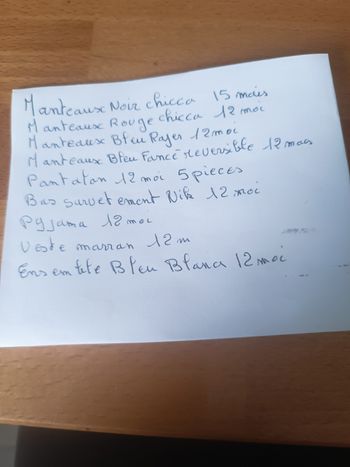 Manteaux Noir chicca 15 mais
Manteaux Rouge chicca 12 moi
Manteaux Bleu Rayer 12 moi
Manteaux Bleu Foncé reversible 12 mois
Pantalon 12 moi 5 pieces
Bas survetement Nike 12 moi
Pyjama 12 moi
Veste marran 12 m
Ensemble Bleu Blanc 12 moi